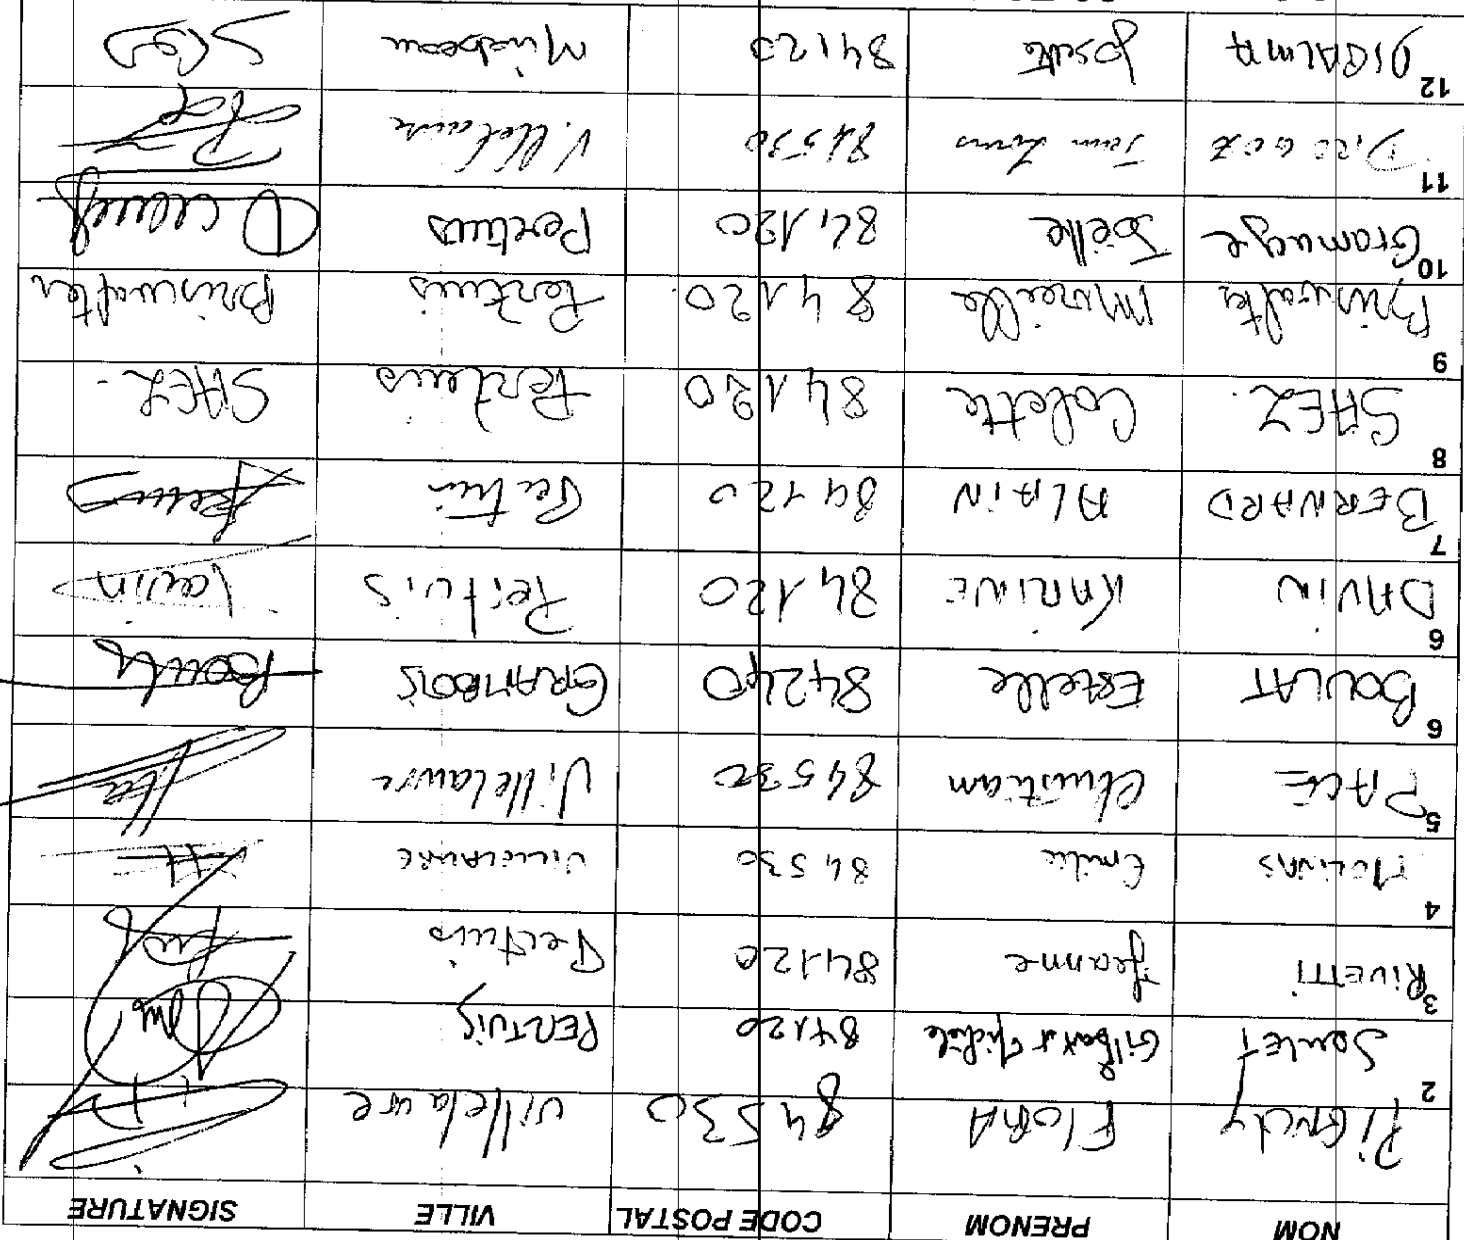 NOM PRENOM CODE POSTAL VILLE SIGNATURE
FLORA 84530 Villelaure
2 Soulet Gilbert & Michèle 84120 PERTUIS
3 RIVETTI Jeanne 84120 Pertuis
4 MOLINAS Emilie 84530 VILLELAURE
5 PACE Christiam 84530 Villelaure
6 BOULAT Estelle 84240 GRAMBOIS
6 DAVIN KARINE 84120 Pertuis Davin
7 BERNARD ALAIN 84120 Pertuis
8 SAEZ. Colette 84120 Pertuis SAEZ.
9 Brinwalter Mireille 84120. Pertuis Brinwalter
10 Gramuge Joëlle 84120 Pertuis
11 Jean Louis 84530 Villelaure
12 DIGALMA Josette 84120 Mirabeau